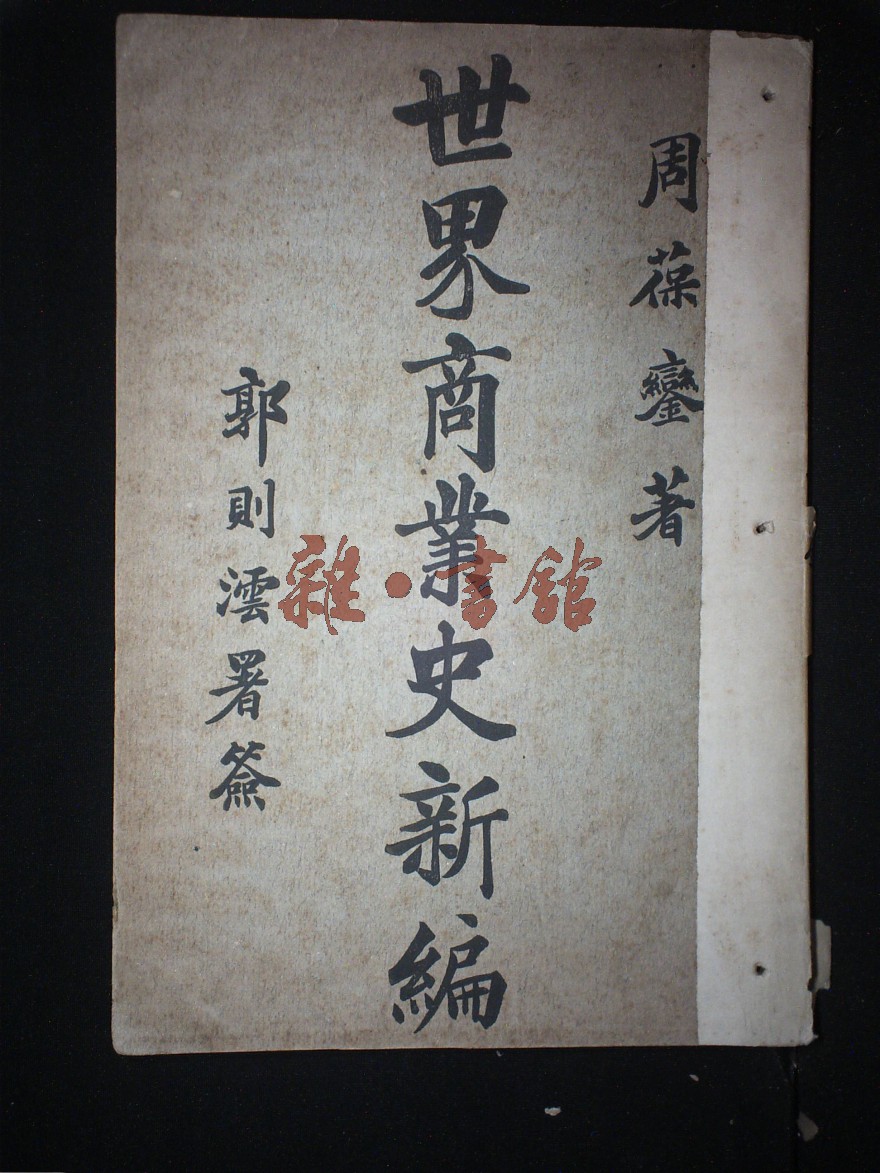 周葆鑾著
世界商業史新編
郭則澐署簽
雜·書館